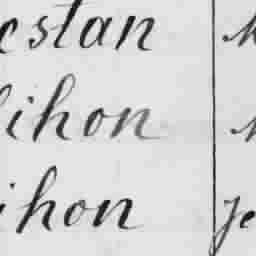 estan
ihon
ihon Je